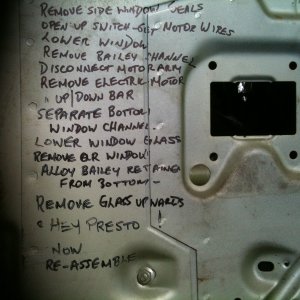 REMOVE SIDE WINDOW SEALS
OPEN UP SWITCH - GET MOTOR WIRES
LOWER WINDOW
REMOVE BAILEY CHANNEL
DISCONNECT MOTOR ARM
REMOVE ELECTRIC MOTOR
UP/DOWN BAR
SEPARATE BOTTOM
WINDOW CHANNEL
LOWER WINDOW GLASS
REMOVE WINDOW
ALLOY BAILEY RETAINER
FROM BOTTOM -
REMOVE GLASS UPWARDS
HEY PRESTO !
NOW
RE-ASSEMBLE